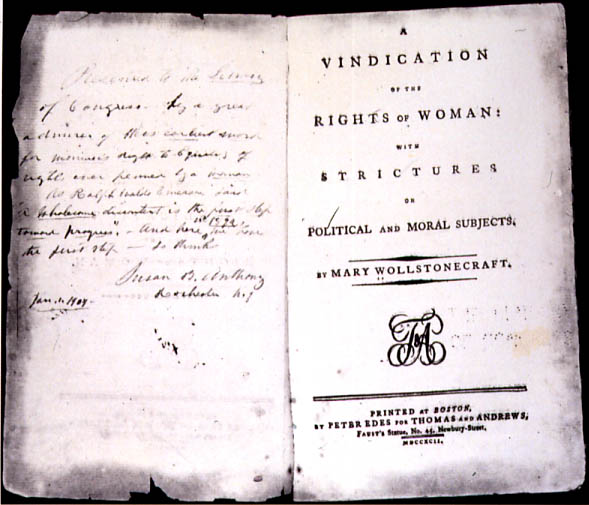 Presented to the Library
of Congress. by a great
admirer of this earliest word
for woman's right to Equality of
rights ever penned by a woman
As Ralph Waldo Emerson said
"A wholesome discontent is the first step
toward progress" - And here in 1792 we have
the first step - so think
Susan B. Anthony
Rochester N.Y
Jan. 1. 1904.
A
VINDICATION
OF THE
RIGHTS OF WOMAN:
WITH
STRICTURES
ON
POLITICAL AND MORAL SUBJECTS.
BY MARY WOLLSTONECRAFT.
T&A
PRINTED AT BOSTON,
BY PETER EDES FOR THOMAS AND ANDREWS,
FAUST'S Statue, No. 45, Newbury-Street,
MDCCXCII.